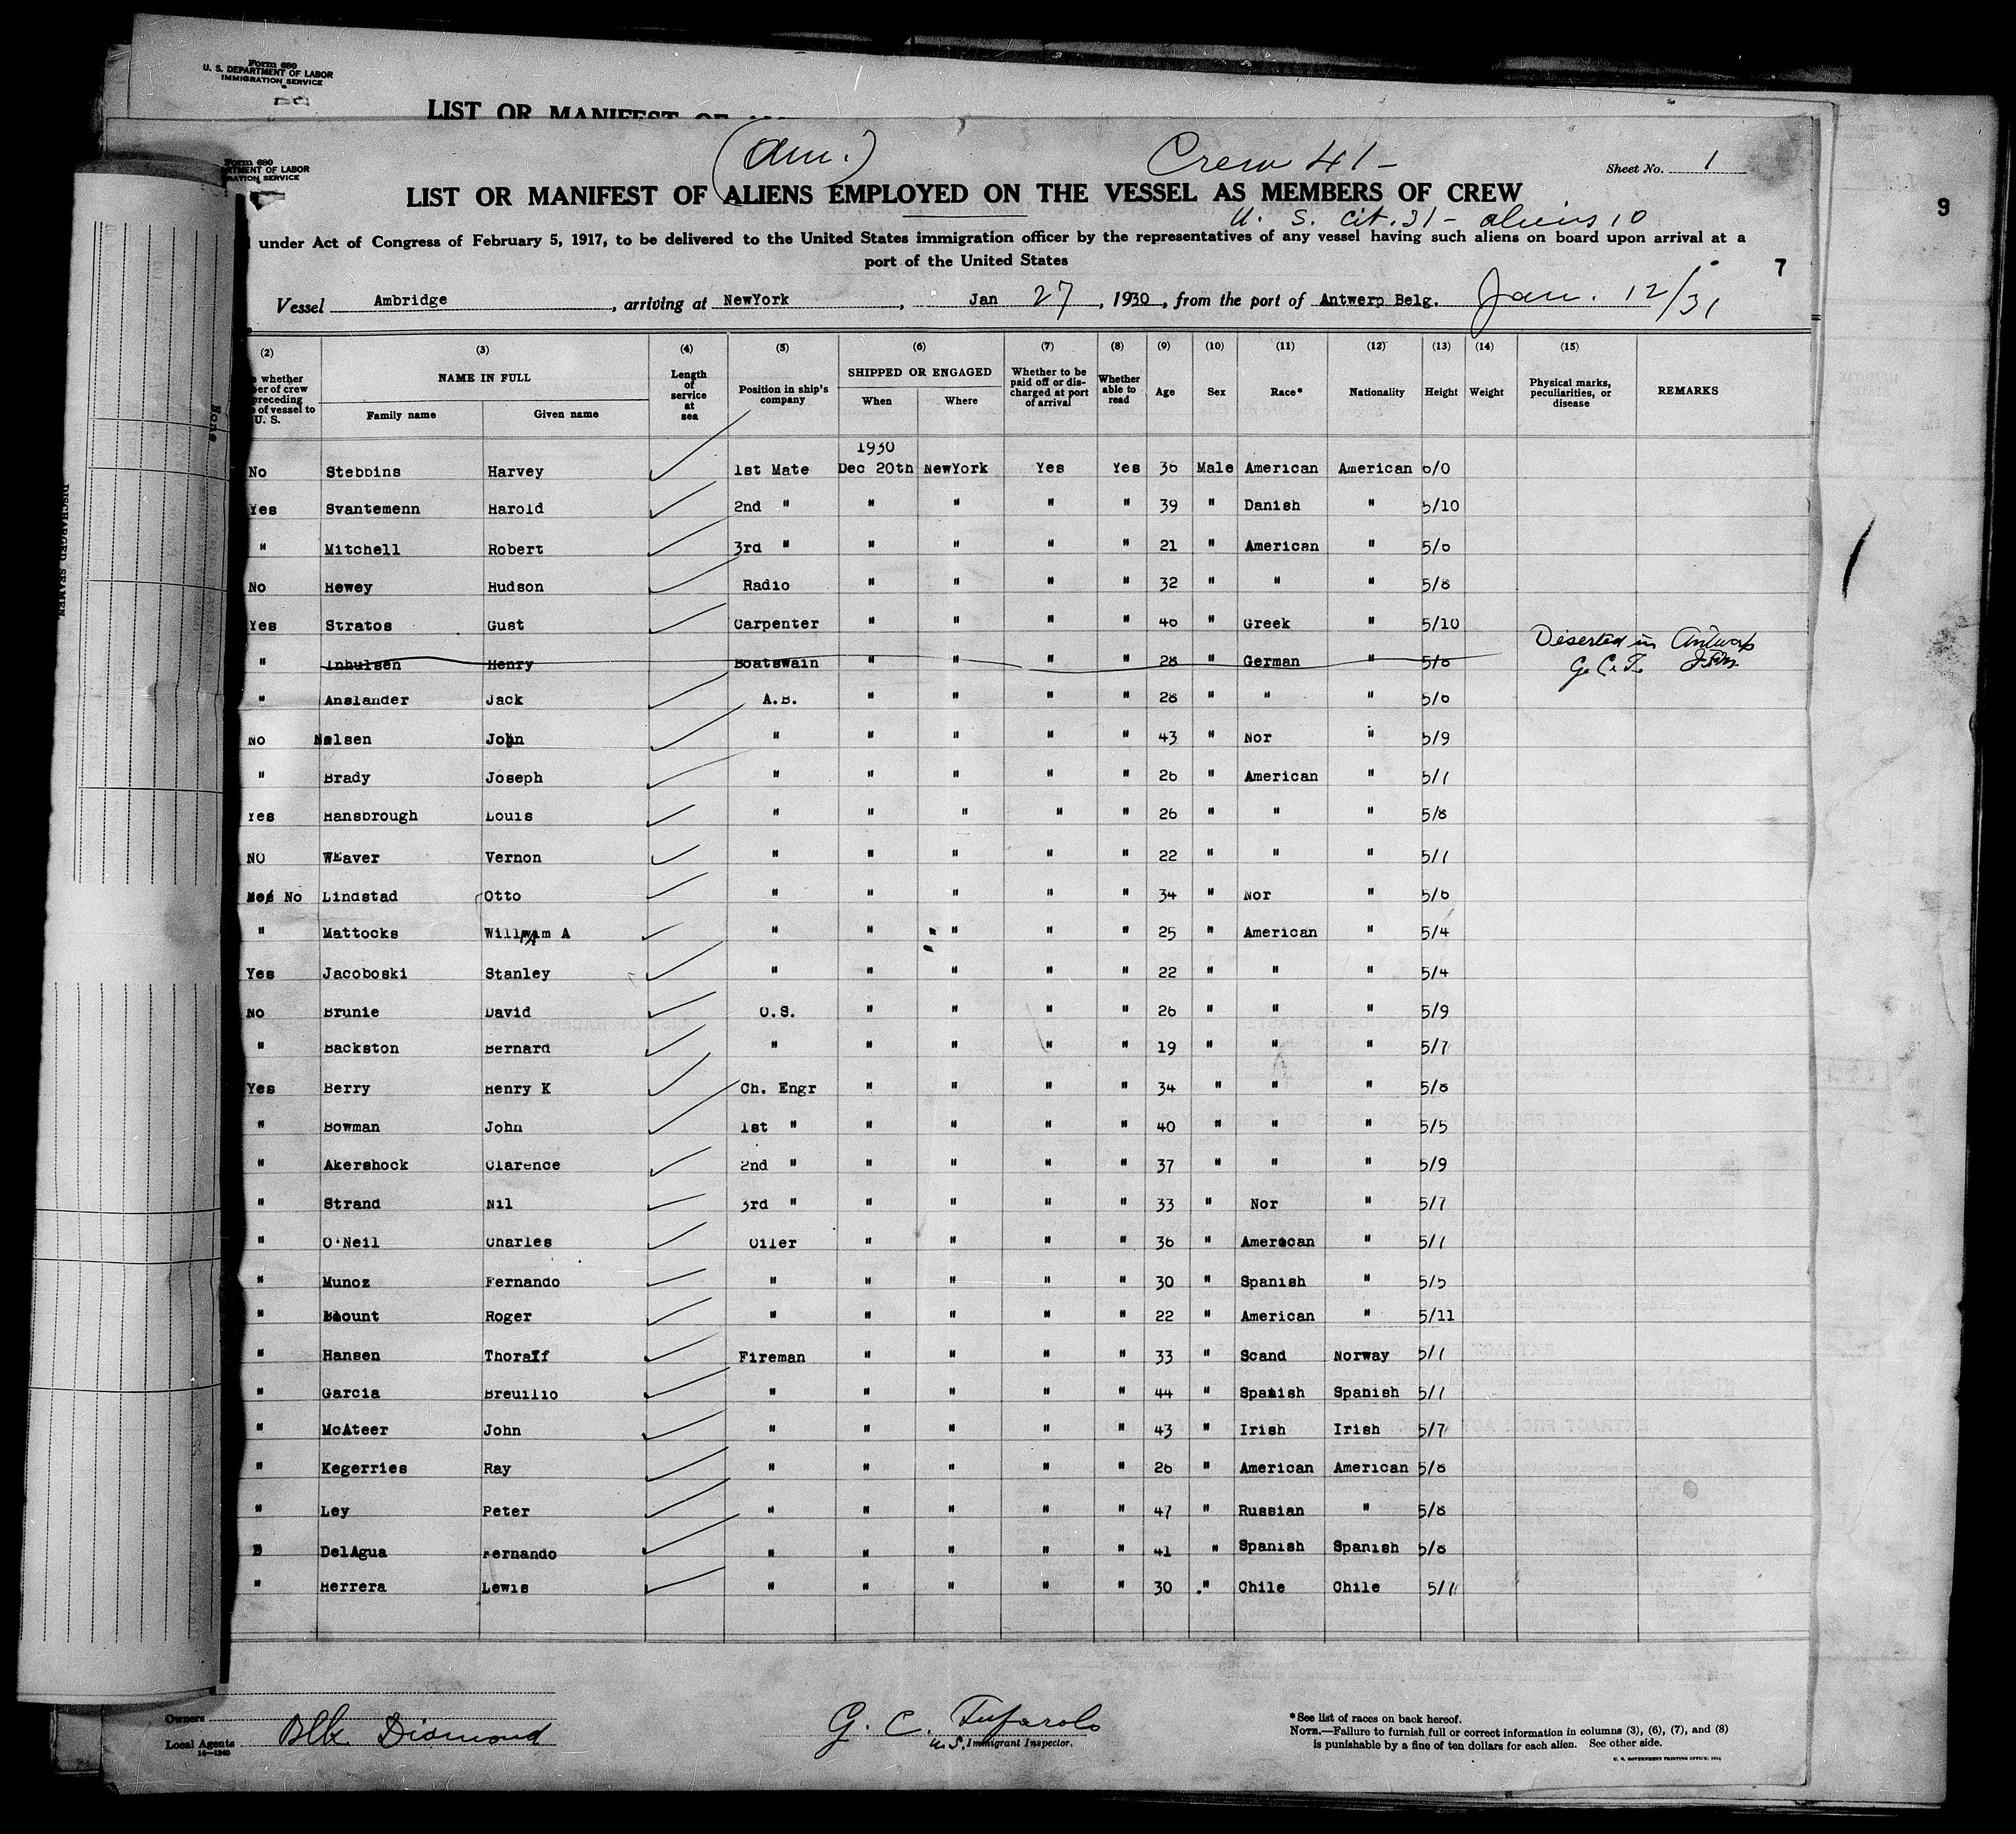 Form 680
U. S. DEPARTMENT OF LABOR
IMMIGRATION SERVICE
LIST OR MANIFEST OF
Form 680
TMENT OF LABOR
RATION SERVICE
(Am.) Crew 41- Sheet No. 1
LIST OR MANIFEST OF ALIENS EMPLOYED ON THE VESSEL AS MEMBERS OF CREW
U. S. cit. 31 - aliens 10
9
under Act of Congress of February 5, 1917, to be delivered to the United States immigration officer by the representatives of any vessel having such aliens on board upon arrival at a
port of the United States
7
Vessel Ambridge, arriving at NewYork, Jan 27, 1930, from the port of Antwerp Belg. Jan. 12/31
(2) (3) (4) (5) (6) (7) (8) (9) (10) (11) (12) (13) (14) (15)
whether
ber of crew
preceding
of vessel to
U. S.
NAME IN FULL
Family name Given name
Length
of
service
at
sea
Position in ship's
company
SHIPPED OR ENGAGED
When Where
Whether to be
paid off or dis-
charged at port
of arrival
Whether
able to
read
Age Sex Race* Nationality Height Weight
Physical marks,
peculiarities, or
disease
REMARKS
1930
No Stebbins Harvey 1st Mate Dec 20th NewYork Yes Yes 36 Male American American 6/0
Yes Svantemenn Harold 2nd " " " " " 39 " Danish " 5/10
" Mitchell Robert 3rd " " " " " 21 " American " 5/6
No Hewey Hudson Radio " " " " 32 " " " 5/8
Yes Stratos Gust Carpenter " " " " 46 " Greek " 5/10
" Inhulsen Henry Boatswain " " " " 28 " German " 5/8 Diserted in Antwerp
G. C. T.
" Anslander Jack A.B. " " " " 28 " " " 5/6
No Nelsen John " " " " " 43 " Nor " 5/9
" Brady Joseph " " " " " 26 " American " 5/7
Yes Hansbrough Louis " " " " " 26 " " " 5/8
NO WEaver Vernon " " " " " 22 " " " 5/7
No Lindstad Otto " " " " " 34 " Nor " 5/6
" Mattocks William A " " " " " 25 " American " 5/4
Yes Jacoboski Stanley " " " " " 22 " " " 5/4
No Brunie David O.S. " " " " 26 " " " 5/9
" Backston Bernard " " " " " 19 " " " 5/7
Yes Berry Henry K Ch. Engr " " " " 34 " " " 5/8
" Bowman John 1st " " " " " 40 " " " 5/5
" Akershock Clarence 2nd " " " " " 37 " " " 5/9
" Strand Nil 3rd " " " " " 33 " Nor " 5/7
" O'Neil Charles Oiler " " " " 36 " American " 5/7
" Munoz Fernando " " " " " 30 " Spanish " 5/5
" Blount Roger " " " " " 22 " American " 5/11
" Hansen Thoralf Fireman " " " " 33 " Scand Norway 5/7
" Garcia Breuilio " " " " " 44 " Spanish Spanish 5/7
" McAteer John " " " " " 43 " Irish Irish 5/7
" Kegerries Ray " " " " " 26 " American American 5/8
" Ley Peter " " " " " 47 " Russian " 5/8
" DelAgua Fernando " " " " " 41 " Spanish Spanish 5/8
" Herrera Lewis " " " " " 30 " Chile Chile 5/7
Owners
Local Agents Blk Diamond
14-1240
G. C. Tufarolo
U.S. Immigrant Inspector.
*See list of races on back hereof.
NOTE.—Failure to furnish full or correct information in columns (3), (6), (7), and (8)
is punishable by a fine of ten dollars for each alien. See other side.
None
DISCHARGED SEAMEN